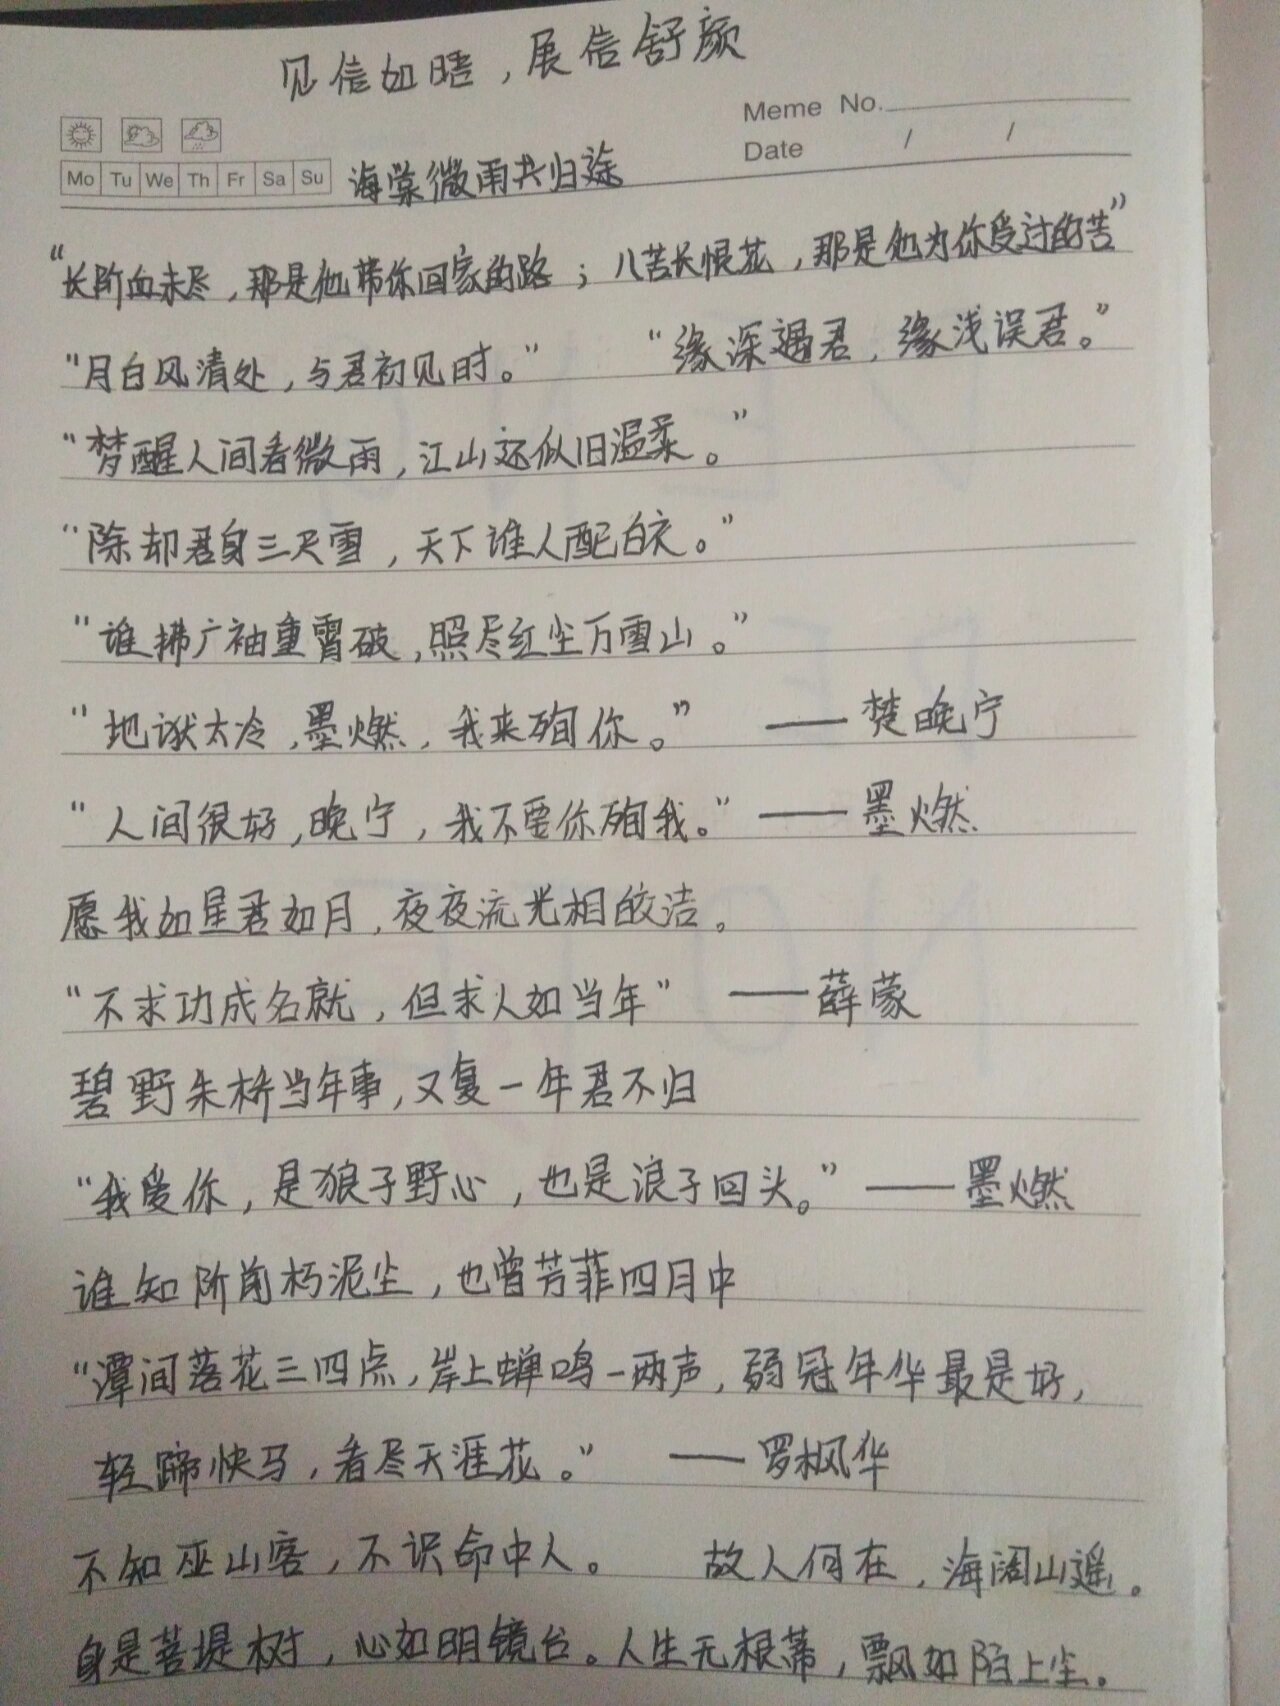 见信如晤，展信舒颜
Meme No.
Date / /
Mo Tu We Th Fr Sa Su
海棠微雨共归途
“长阶血未尽，那是他带你回家的路；八苦长恨花，那是他为你受过的苦”
“月白风清处，与君初见时。” “缘深遇君，缘浅误君。”
“梦醒人间看微雨，江山还似旧温柔。”
“除却君身三尺雪，天下谁人配白衣。”
“谁拂广袖重霄破，照尽红尘万雪山。”
“地狱太冷，墨燃，我来殉你。” ——楚晚宁
“人间很好，晚宁，我不要你殉我。” ——墨燃
愿我如星君如月，夜夜流光相皎洁。
“不求功成名就，但求人如当年” ——薛蒙
碧野朱桥当年事，又复一年君不归
“我爱你，是狼子野心，也是浪子回头。” ——墨燃
谁知阶前朽泥尘，也曾芳菲四月中
“潭间落花三四点，岸上蝉鸣一两声，弱冠年华最是好，
轻蹄快马，看尽天涯花。” ——罗枫华
不知巫山客，不识命中人。 故人何在，海阔山遥。
身是菩提树，心如明镜台。人生无根蒂，飘如陌上尘。